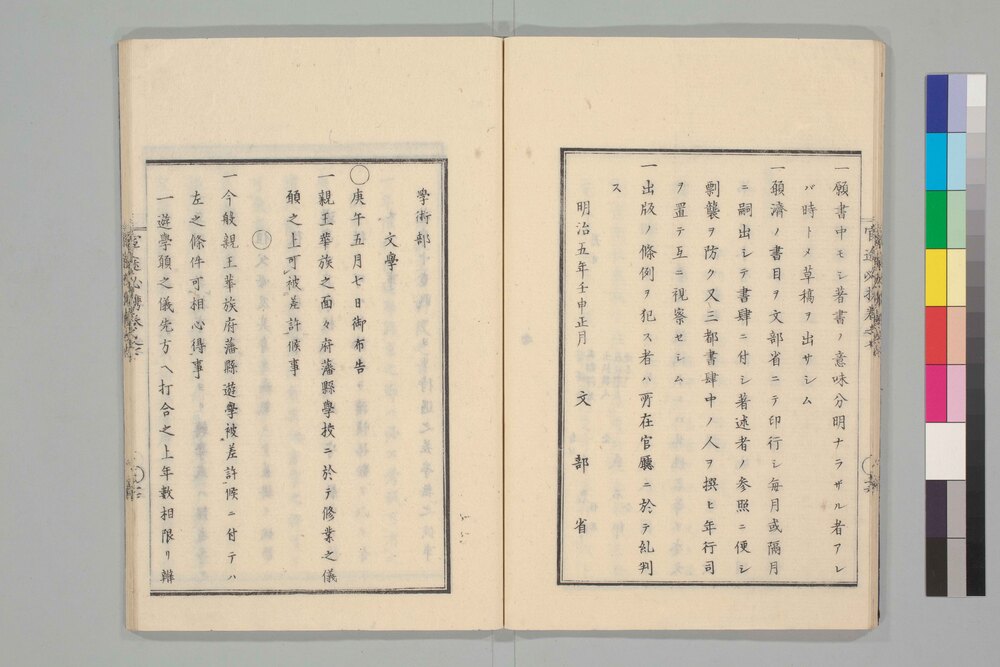 一願書中モシ著書ノ意味分明ナラザル者アレ
バ時トメ草稿ヲ出サシム
一願濟ノ書目ヲ文部省ニテ印行シ毎月或隔月
ニ嗣出シテ書肆ニ付シ著述者ノ参照ニ便シ
剽襲ヲ防ク又三都書肆中ノ人ヲ撰ヒ年行司
ヲ置テ互ニ視察セシム
一出版ノ條例ヲ犯ス者ハ所在官廳ニ於テ糺判
ス
明治五年壬申正月 文部省
學術部
文學
〇庚午五月七日御布告
一親王華族之面々府藩縣學校ニ於テ修業之儀
願之上可被差許候事
〇
一今般親王華族府藩縣遊學被差許候ニ付テハ
左之條件可相心得事
一遊學願之儀先方ヘ打合之上年數相限リ辨
官途必携巻之